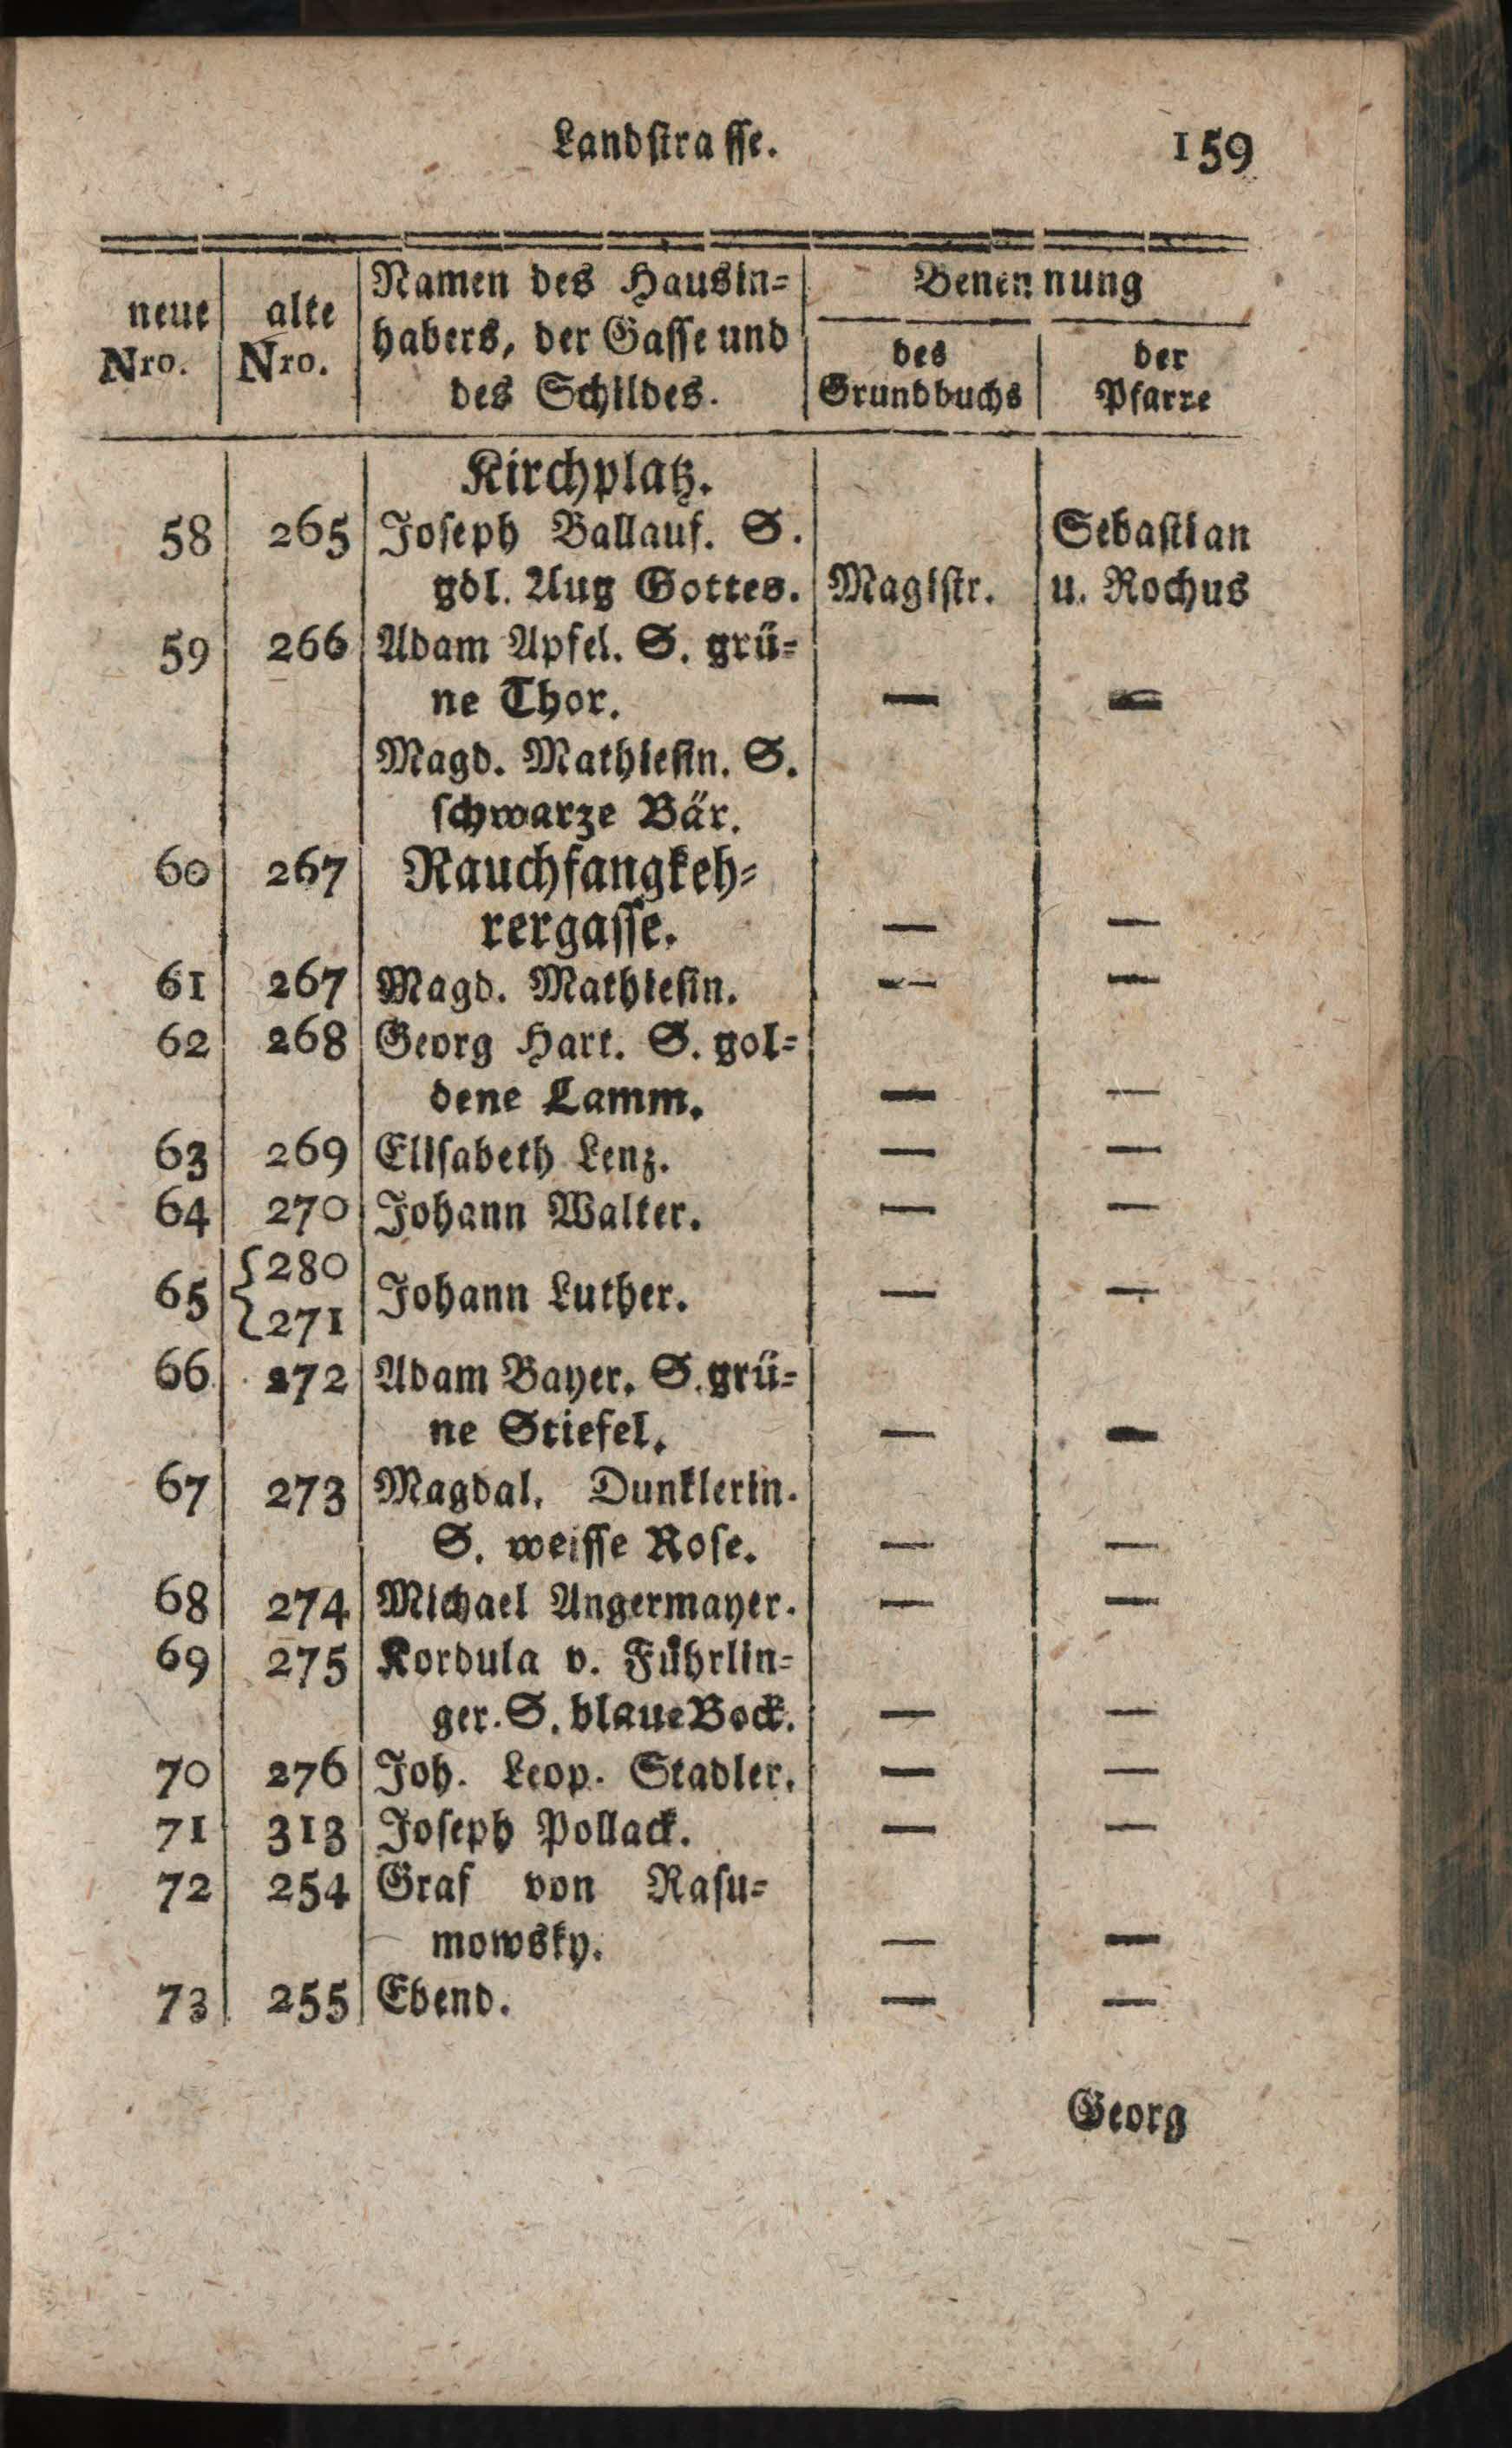 Landstrasse. 159
neue Nro. | alte Nro. | Namen des Hausin= | Benennung
habers, der Gasse und | des Grundbuchs | der Pfarre
des Schildes.
Kirchplatz.
58 265 Joseph Ballauf. S. Sebastian
gdl. Aug Gottes. Magistr. u. Rochus
59 266 Adam Apfel. S. grü=
ne Thor. — —
Magd. Mathiesin. S.
schwarze Bär.
60 267 Rauchfangkeh=
rergasse. — —
61 267 Magd. Mathiesin. — —
62 268 Georg Hart. S. gol=
dene Lamm. — —
63 269 Elisabeth Lenz. — —
64 270 Johann Walter. — —
65 {280 271 Johann Luther. — —
66 272 Adam Bayer. S. grü=
ne Stiefel. — —
67 273 Magdal. Dunklerin.
S. weisse Rose. — —
68 274 Michael Angermayer. — —
69 275 Kordula v. Führlin=
ger. S. blaue Bock. — —
70 276 Joh. Leop. Stadler. — —
71 313 Joseph Pollack. — —
72 254 Graf von Rasu=
mowsky. — —
73 255 Ebend. — —
Georg